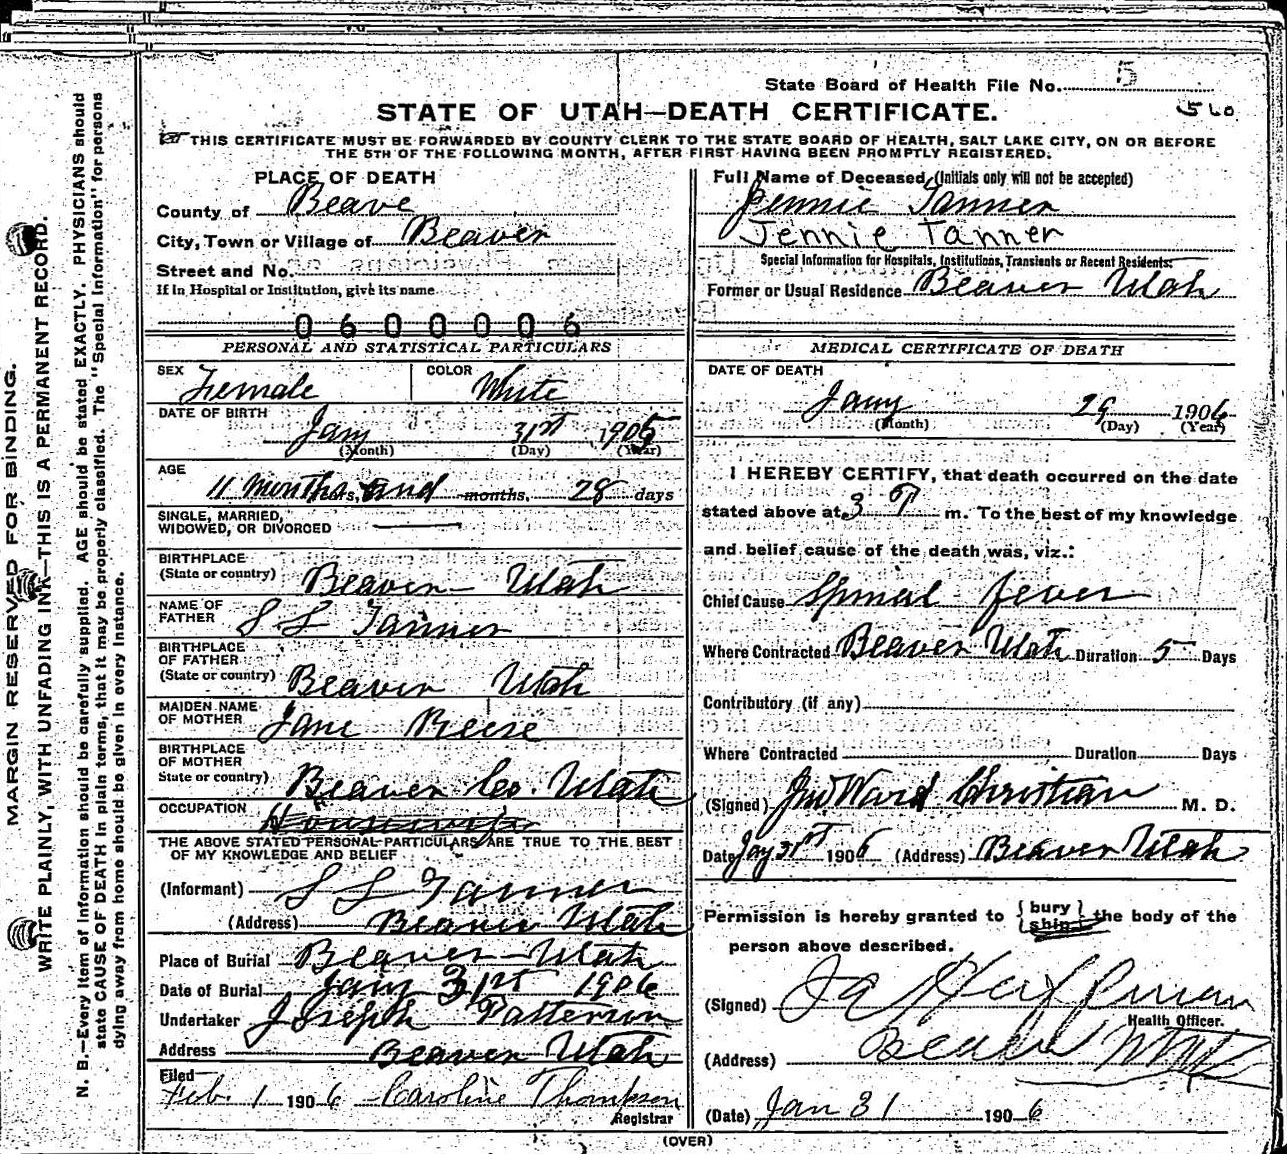 State Board of Health File No. 5
STATE OF UTAH—DEATH CERTIFICATE. 560
THIS CERTIFICATE MUST BE FORWARDED BY COUNTY CLERK TO THE STATE BOARD OF HEALTH, SALT LAKE CITY, ON OR BEFORE
THE 5TH OF THE FOLLOWING MONTH, AFTER FIRST HAVING BEEN PROMPTLY REGISTERED.
PLACE OF DEATH
County of Beave
City, Town or Village of Beaver
Street and No.
If in Hospital or Institution, give its name
0600006
Full Name of Deceased (Initials only will not be accepted)
Jennie Tanner
Jennie Tanner
Special Information for Hospitals, Institutions, Transients or Recent Residents:
Former or Usual Residence Beaver Utah
PERSONAL AND STATISTICAL PARTICULARS
SEX Female COLOR White
DATE OF BIRTH
Jany 31st 1905
(Month) (Day) (Year)
AGE
11 months and months, 28 days
SINGLE, MARRIED,
WIDOWED, OR DIVORCED
BIRTHPLACE
(State or country) Beaver Utah
NAME OF
FATHER S S Tanner
BIRTHPLACE
OF FATHER
(State or country) Beaver Utah
MAIDEN NAME
OF MOTHER Jane Reese
BIRTHPLACE
OF MOTHER
State or country) Beaver Co. Utah
OCCUPATION Housewife
THE ABOVE STATED PERSONAL PARTICULARS ARE TRUE TO THE BEST
OF MY KNOWLEDGE AND BELIEF
(Informant) S S Tanner
(Address) Beaver Utah
Place of Burial Beaver Utah
Date of Burial Jany 31st 1906
Undertaker Joseph Patterson
Address Beaver Utah
Filed
Feb. 1 1906 Caroline Thompson
Registrar
MEDICAL CERTIFICATE OF DEATH
DATE OF DEATH
Jany 29 1906
(Month) (Day) (Year)
I HEREBY CERTIFY, that death occurred on the date
stated above at 3 P m. To the best of my knowledge
and belief cause of the death was, viz.:
Chief Cause Spinal fever
Where Contracted Beaver Utah Duration 5 Days
Contributory (if any)
Where Contracted Duration Days
(Signed) Jno Ward Christian M. D.
Date Jay 31st 1906 (Address) Beaver Utah
Permission is hereby granted to {bury
ship} the body of the
person above described.
(Signed)
Health Officer.
(Address) Beaver Utah
(Date) Jan 31 1906
(OVER)
MARGIN RESERVED FOR BINDING.
WRITE PLAINLY, WITH UNFADING INK—THIS IS A PERMANENT RECORD.
N. B.—Every item of information should be carefully supplied. AGE should be stated EXACTLY. PHYSICIANS should
state CAUSE OF DEATH in plain terms, that it may be properly classified. The "Special Information" for persons
dying away from home should be given in every instance.